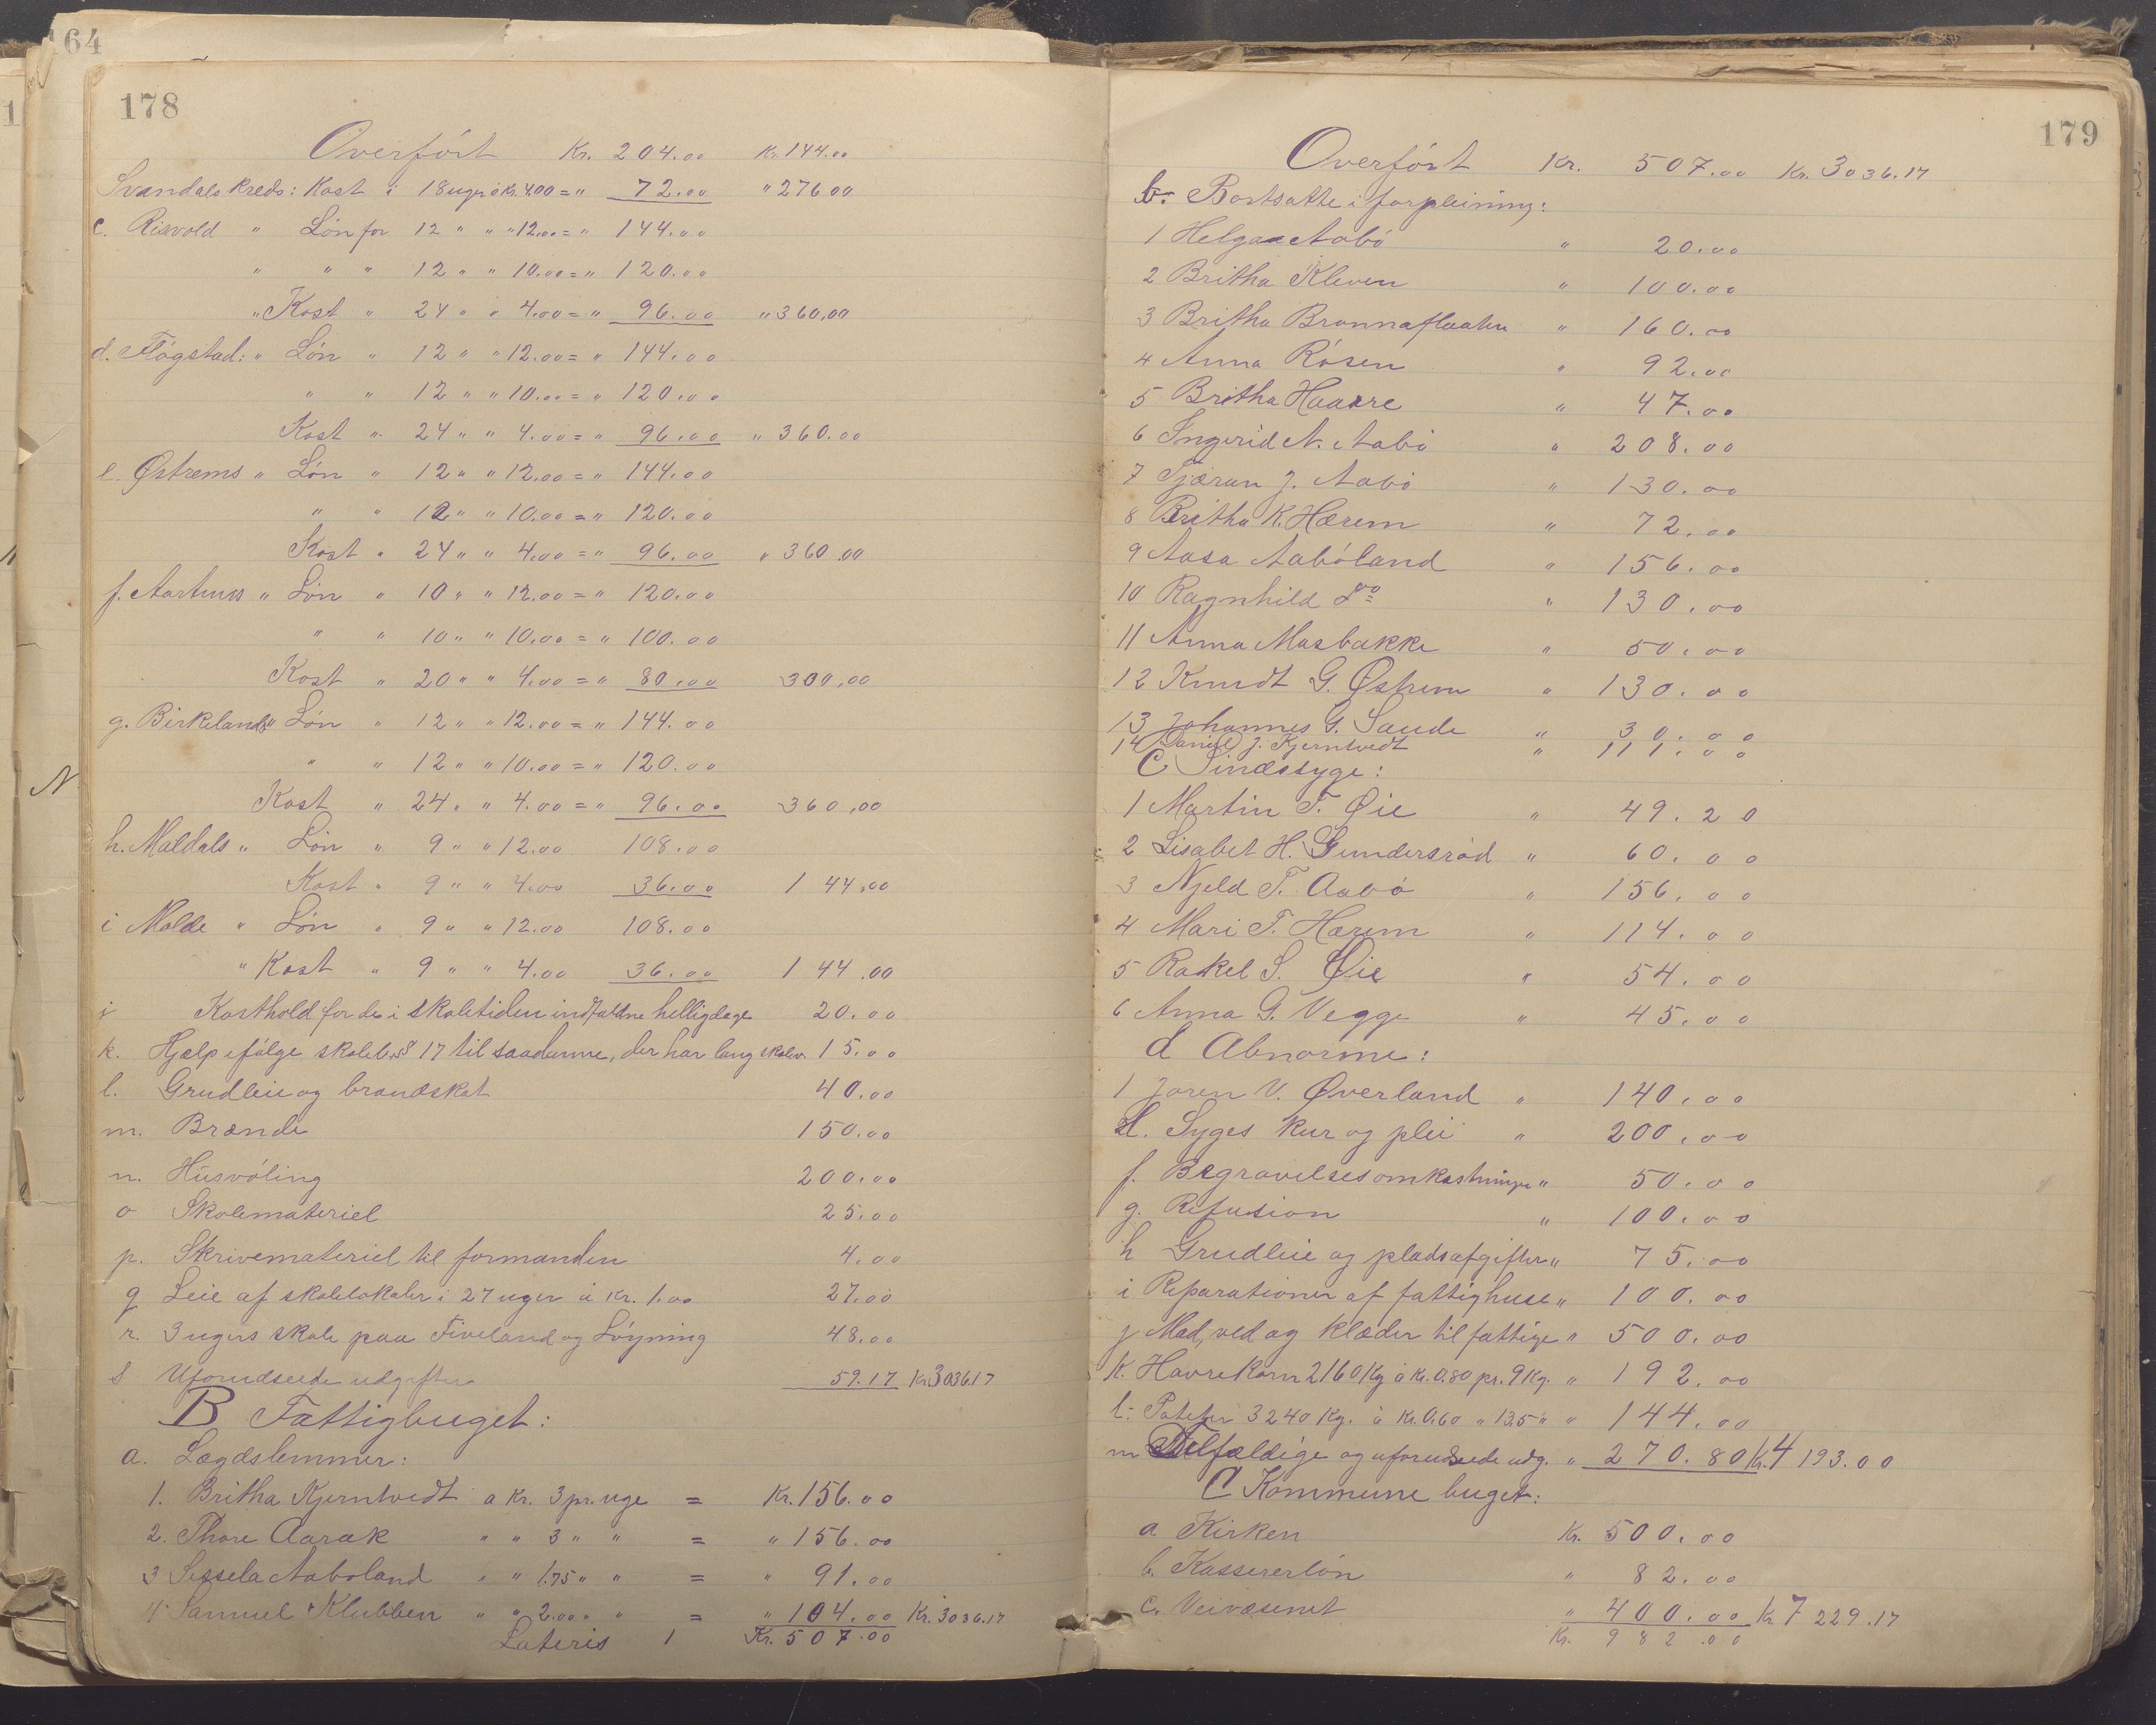 164
178
Overført Kr. 204.00 Kr. 144.00
Svandals kreds: Kost i 18 uger à Kr. 4.00 = " 72.00 " 276 00
c. Risvold " Løn for 12 " " " 12.00 = " 144.00
" " " 12 " " 10.00 = " 120.00
" Kost " 24 " " 4.00 = " 96.00 " 360.00
d. Fløgstad: " Løn " 12 " " 12.00 = " 144.00
" " 12 " " 10.00 = " 120.00
Kost " 24 " " 4.00 = " 96.00 " 360.00
e. Østrems " Løn " 12 " " 12.00 = " 144.00
" " 12 " " 10.00 = " 120.00
Kost " 24 " " 4.00 = " 96.00 " 360.00
f. Aartuns " Løn " 10 " " 12.00 = " 120.00
" " 10 " " 10.00 = " 100.00
Kost " 20 " " 4.00 = " 80.00 300.00
g. Birkelands " Løn " 12 " " 12.00 = " 144.00
" " 12 " " 10.00 = " 120.00
Kost " 24 " " 4.00 = " 96.00 360,00
h. Maldals " Løn " 9 " " 12.00 108.00
Kost " 9 " " 4.00 36.00 144.00
i Molde " Løn " 9 " " 12.00 108.00
" Kost " 9 " " 4.00 36.00 144.00
j Kosthold for de i skoletiden indfaldne helligdage 20.00
k. Hjælp ifølge skolel. § 17 til saadanne, der har lang skolev. 15.00
l. Grudleie og brandskat 40.00
m. Brænde 150.00
n. Husvøling 200.00
o Skolemateriel 25.00
p. Skrivemateriel til formanden 4.00
q Leie af skolelokaler i 27 uger à Kr. 1.00 27.00
r. 3 ugers skole paa Fiveland og Løyning 48.00
s Uforudseede udgifter 59.17 Kr. 3036.17
B Fattigbuget:
a. Lægdslemmer:
1. Britha Kjerntvedt a Kr. 3 pr. uge = Kr. 156.00
2. Thore Aarak " " 3 " " = " 156.00
3 Sessela Aaboland " " 1.75 " " = " 91.00
4 Samuel Klubben " " 2.00 " " = " 104.00 Kr. 3036.17
Lateris 1 Kr. 507.00
179
Overført Kr. 507.00 Kr. 3036.17
b. Bortsatte i forpleining:
1 Helga Aabø " 20.00
2 Britha Kleven " 100.00
3 Britha Brannaflaaten " 160.00
4 Anna Røsen " 92.00
5 Britha Haarre " 47.00
6 Ingerid N. Aabø " 208.00
7 Tjæran J. Aabø " 130.00
8 Britha K. Hærem " 72.00
9 Aasa Aabøland " 156.00
10 Ragnhild Do " 130.00
11 Anna Masbakke " 50.00
12 Knudt G. Østrem " 130.00
13 Johannes G. Saude " 30.00
14 Daniel J. Kjerntvedt " 111.00
C Sindssyge:
1 Martin T. Øie " 49.20
2 Lisabet H. Gundersrød " 60.00
3 Njeld T. Aabø " 156.00
4 Mari T. Hærem " 114.00
5 Rakel S. Øie " 54.00
6 Anna G. Vegge " 45.00
d Abnorme:
1 Joren V. Øverland " 140.00
Syges kur og pleie " 200.00
f. Begravelsesomkostninger " 50.00
g. Refusion " 100.00
h Grudleie og pladsafgifter " 75.00
i Reparationer af fattighuse " 100.00
j Mad, ved og klæder til fattige " 500.00
k. Havrekorn 2160 Kg à Kr. 0.80 pr. 9 Kg. " 192.00
l. Poteter 3240 Kg. à Kr. 0.60 " 13.5 " " 144.00
m Tilfældige og uforudseede udg. " 270.80 Kr. 4193.00
C Kommune buget:
a Kirken Kr. 500.00
b. Kassererløn " 82.00
c. Veivæsenet " 400.00 Kr. 7229.17
Kr. 982.00